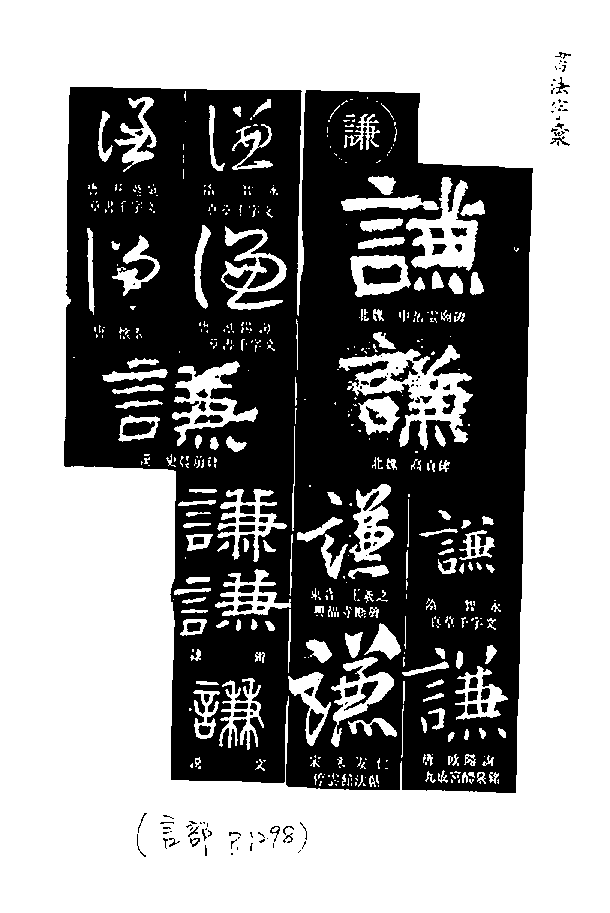 書法字彙
謙
謙
北魏 中岳雲廟碑
謙
北魏 高貞碑
謙
隋 智永
真草千字文
謙
唐 歐陽詢
九成宮醴泉銘
謙
東晉 王羲之
興福寺斷碑
謙
宋 米友仁
停雲館法帖
謙
隋 智永
真草千字文
謙
唐 歐陽詢
草書千字文
謙
草書千字文
謙
唐 懷素
謙
漢 史晨前碑
謙
謙
隸辨
謙
說文
(言部 P.1298)